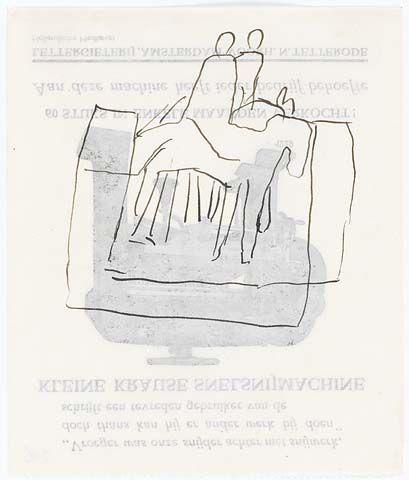 „Vroeger was onze snijder achter met snijwerk,
doch thans kan hij er ander werk bij doen”
schrijft een tevreden gebruiker van de
KLEINE KRAUSE SNELSNIJMACHINE
60 STUKS IN ENKELE MAANDEN VERKOCHT!
Aan deze machine heeft ieder bedrijf behoefte
LETTERGIETERIJ „AMSTERDAM” VOORH. N. TETTERODE